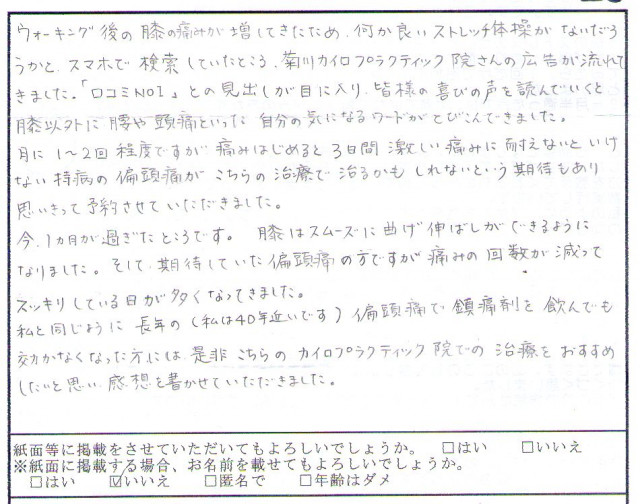 ウォーキング後の膝の痛みが増してきたため、何か良いストレッチ体操がないだろ
うかと、スマホで検索していたところ、菊川カイロプラクティック院さんの広告が流れて
きました。「口コミNO1」との見出しが目に入り、皆様の喜びの声を読んでいくと
膝以外に腰や頭痛といった自分の気になるワードがとびこんできました。
月に1〜2回程度ですが痛みはじめると3日間激しい痛みに耐えないといけ
ない持病の偏頭痛がこちらの治療で治るかもしれないという期待もあり
思いきって予約させていただきました。
今、1カ月が過ぎたところです。膝はスムーズに曲げ伸ばしができるように
なりました。そして、期待していた偏頭痛の方ですが痛みの回数が減って
スッキリしている日が多くなってきました。
私と同じように長年の(私は40年近いです)偏頭痛で鎮痛剤を飲んでも
効かなくなった方には、是非こちらのカイロプラクティック院での治療をおすすめ
したいと思い、感想を書かせていただきました。
紙面等に掲載をさせていただいてもよろしいでしょうか。 □はい □いいえ
※紙面に掲載する場合、お名前を載せてもよろしいでしょうか。
□はい ☑いいえ □匿名で □年齢はダメ